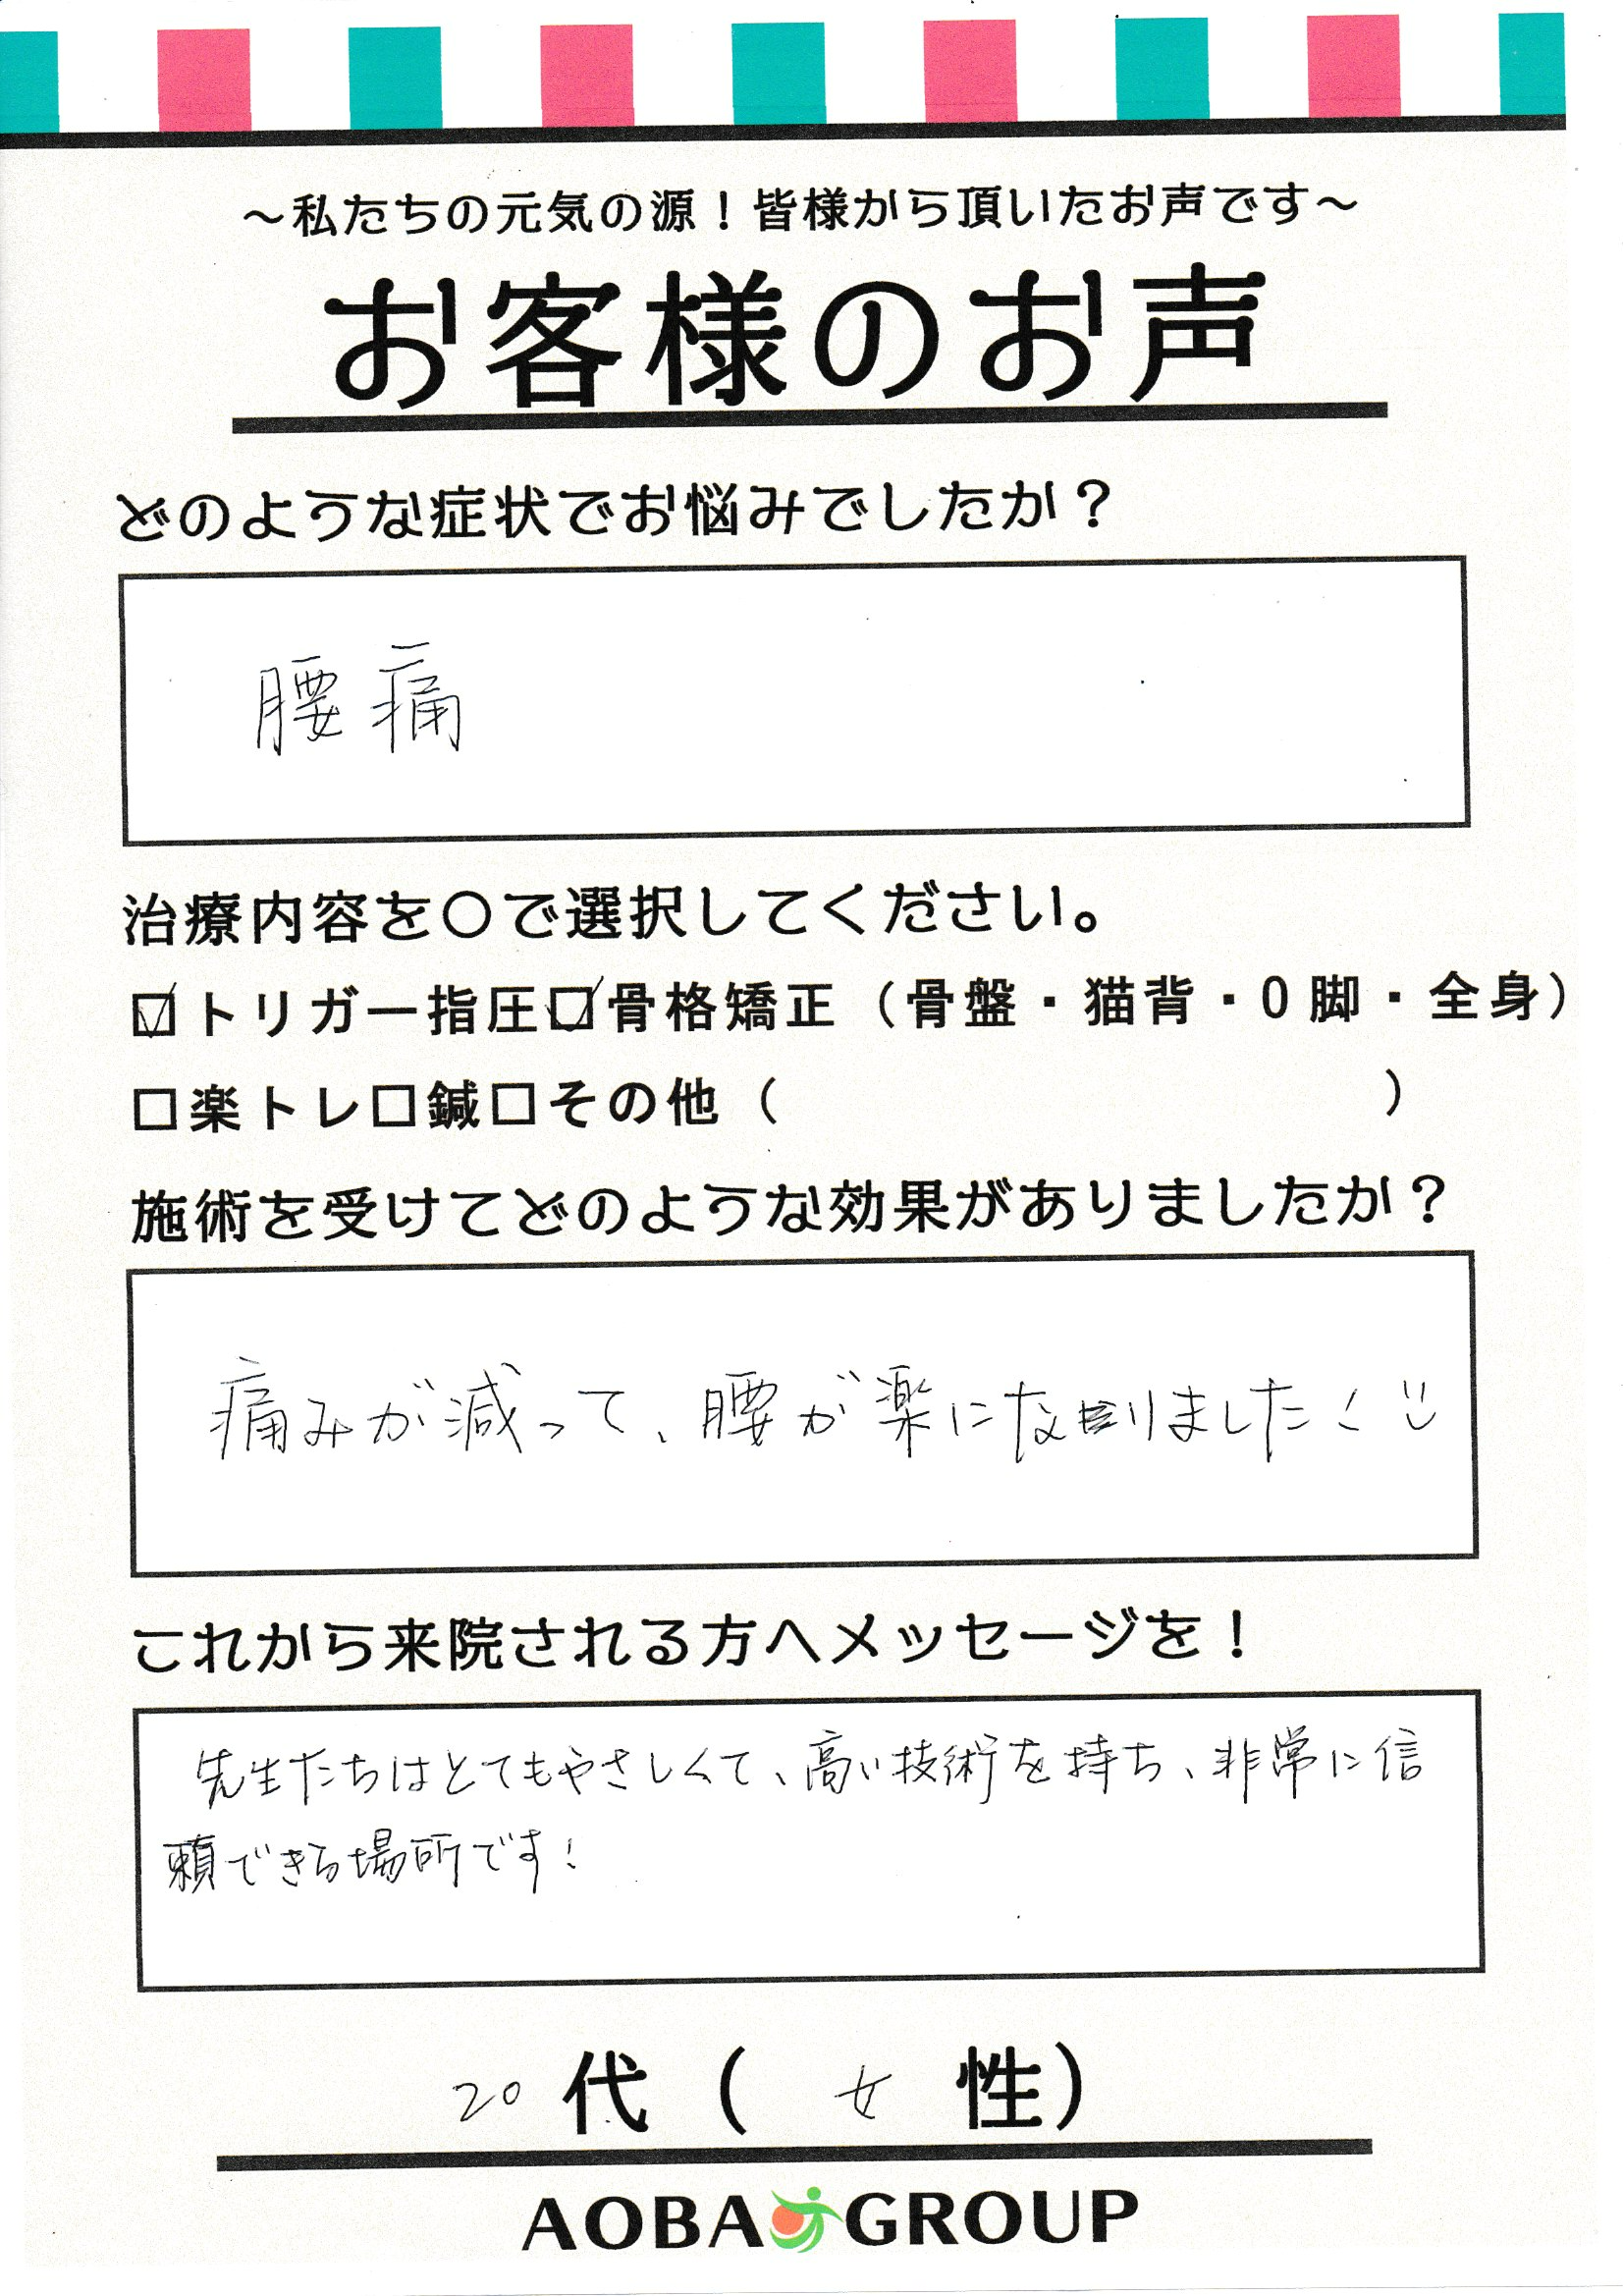 ～私たちの元気の源！皆様から頂いたお声です～
お客様のお声
どのような症状でお悩みでしたか？
腰痛
治療内容を〇で選択してください。
☑トリガー指圧☑骨格矯正（骨盤・猫背・O脚・全身）
□楽トレ□鍼□その他（　　　　　　　　　　）
施術を受けてどのような効果がありましたか？
痛みが減って、腰が楽になりました！
これから来院される方へメッセージを！
先生たちはとてもやさしくて、高い技術を持ち、非常に信
頼できる場所です！
20代（女性）
AOBA GROUP